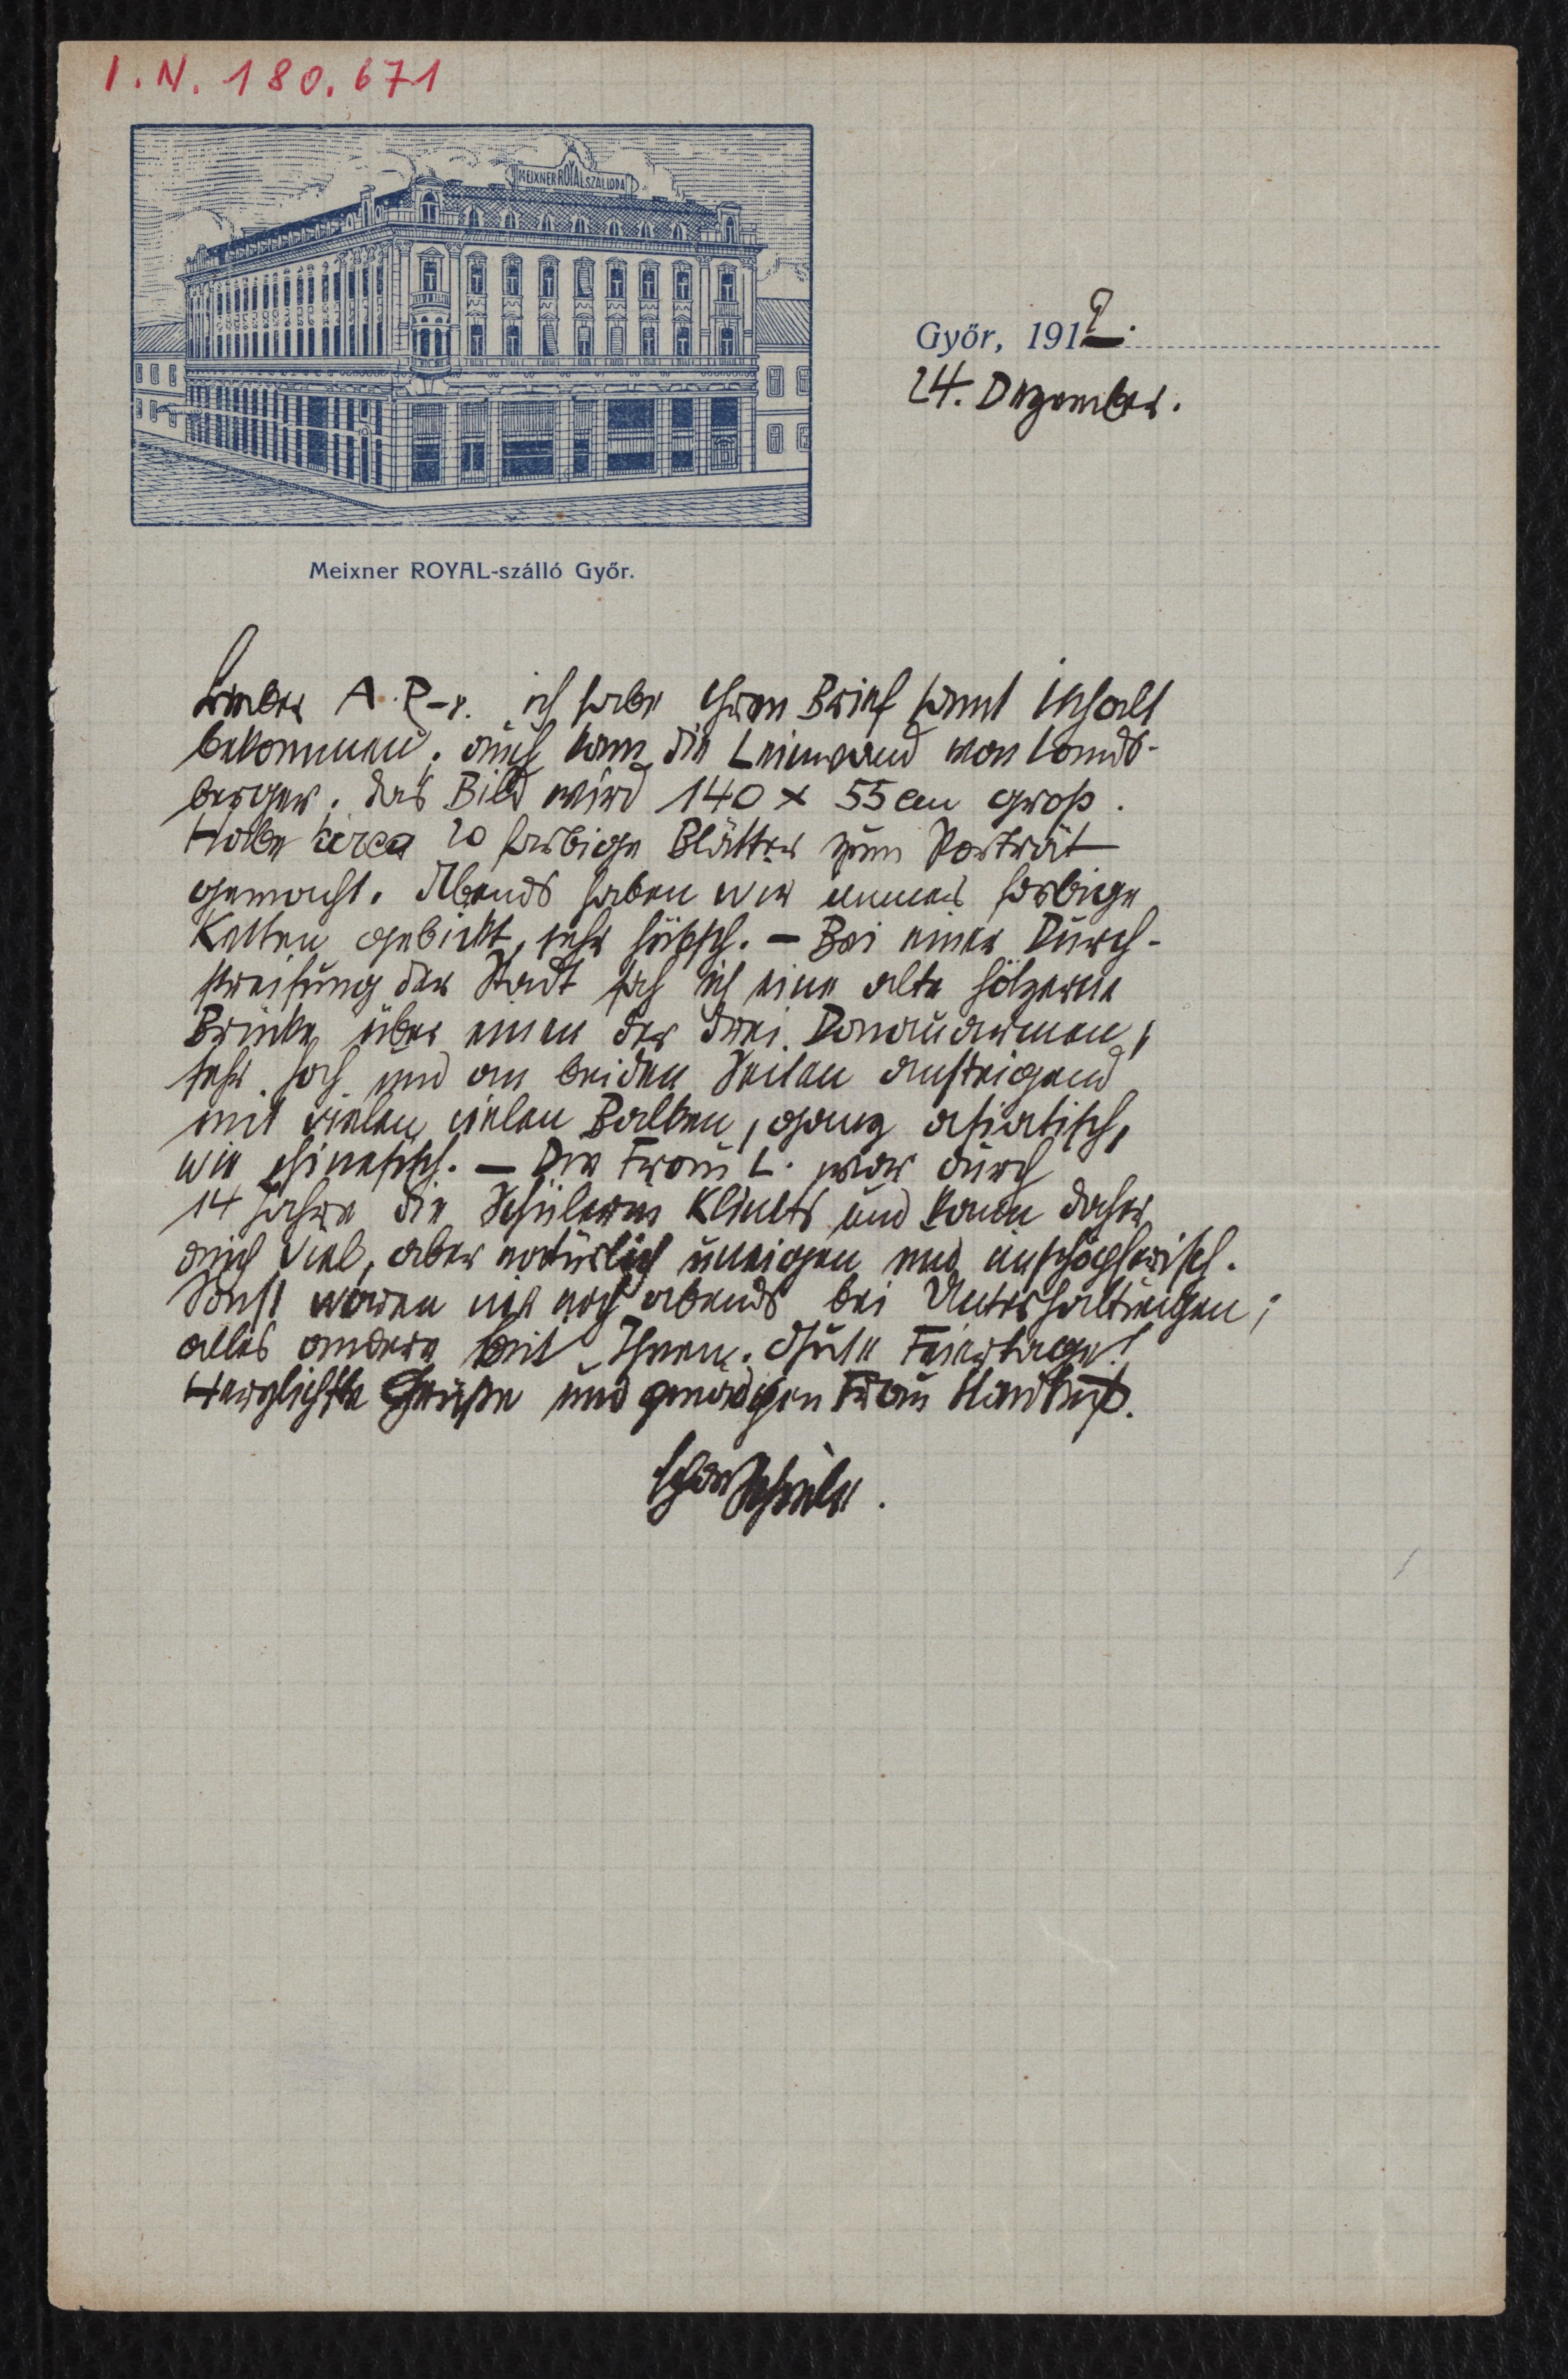 I.N. 180.671
MEIXNER ROYAL SZÁLLODA
Győr, 1912.
24. Dezember.
Meixner ROYAL-szálló Győr.
Lieber A. R–r. ich habe Ihren Brief samt Inhalt
bekommen; auch kam die Leinwand von Lands-
berger. das Bild wird 140 x 55 cm groß.
Habe circa 20 farbige Blätter zum Porträt
gemacht. Abends haben wir immer farbige
Ketten gebickt, sehr hübsch. – Bei einer Durch-
streifung der Stadt sah ich eine alte hölzerne
Brücke über einen der drei Donauarmen,
sehr hoch und an beiden Seiten ansteigend
mit vielen vielen Balken, ganz asiatisch,
wie chinesisch. – Die Frau L. war durch
14 Jahre die Schülerin Klimts und kann daher
auch viel, aber natürlich uneigen und unschöpferisch.
Sonst waren wir noch abends bei Unterhaltungen;
alles andere bei Ihnen. Gute Feiertage!
Herzlichste Grüße und gnädigen Frau Handkuß.
Egon Schiele.